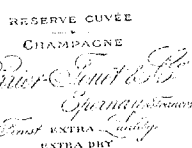 RESERVE CUVÉE
CHAMPAGNE
rrier-Jouët & Co
Epernay, France
Finest EXTRA Quality
EXTRA DRY